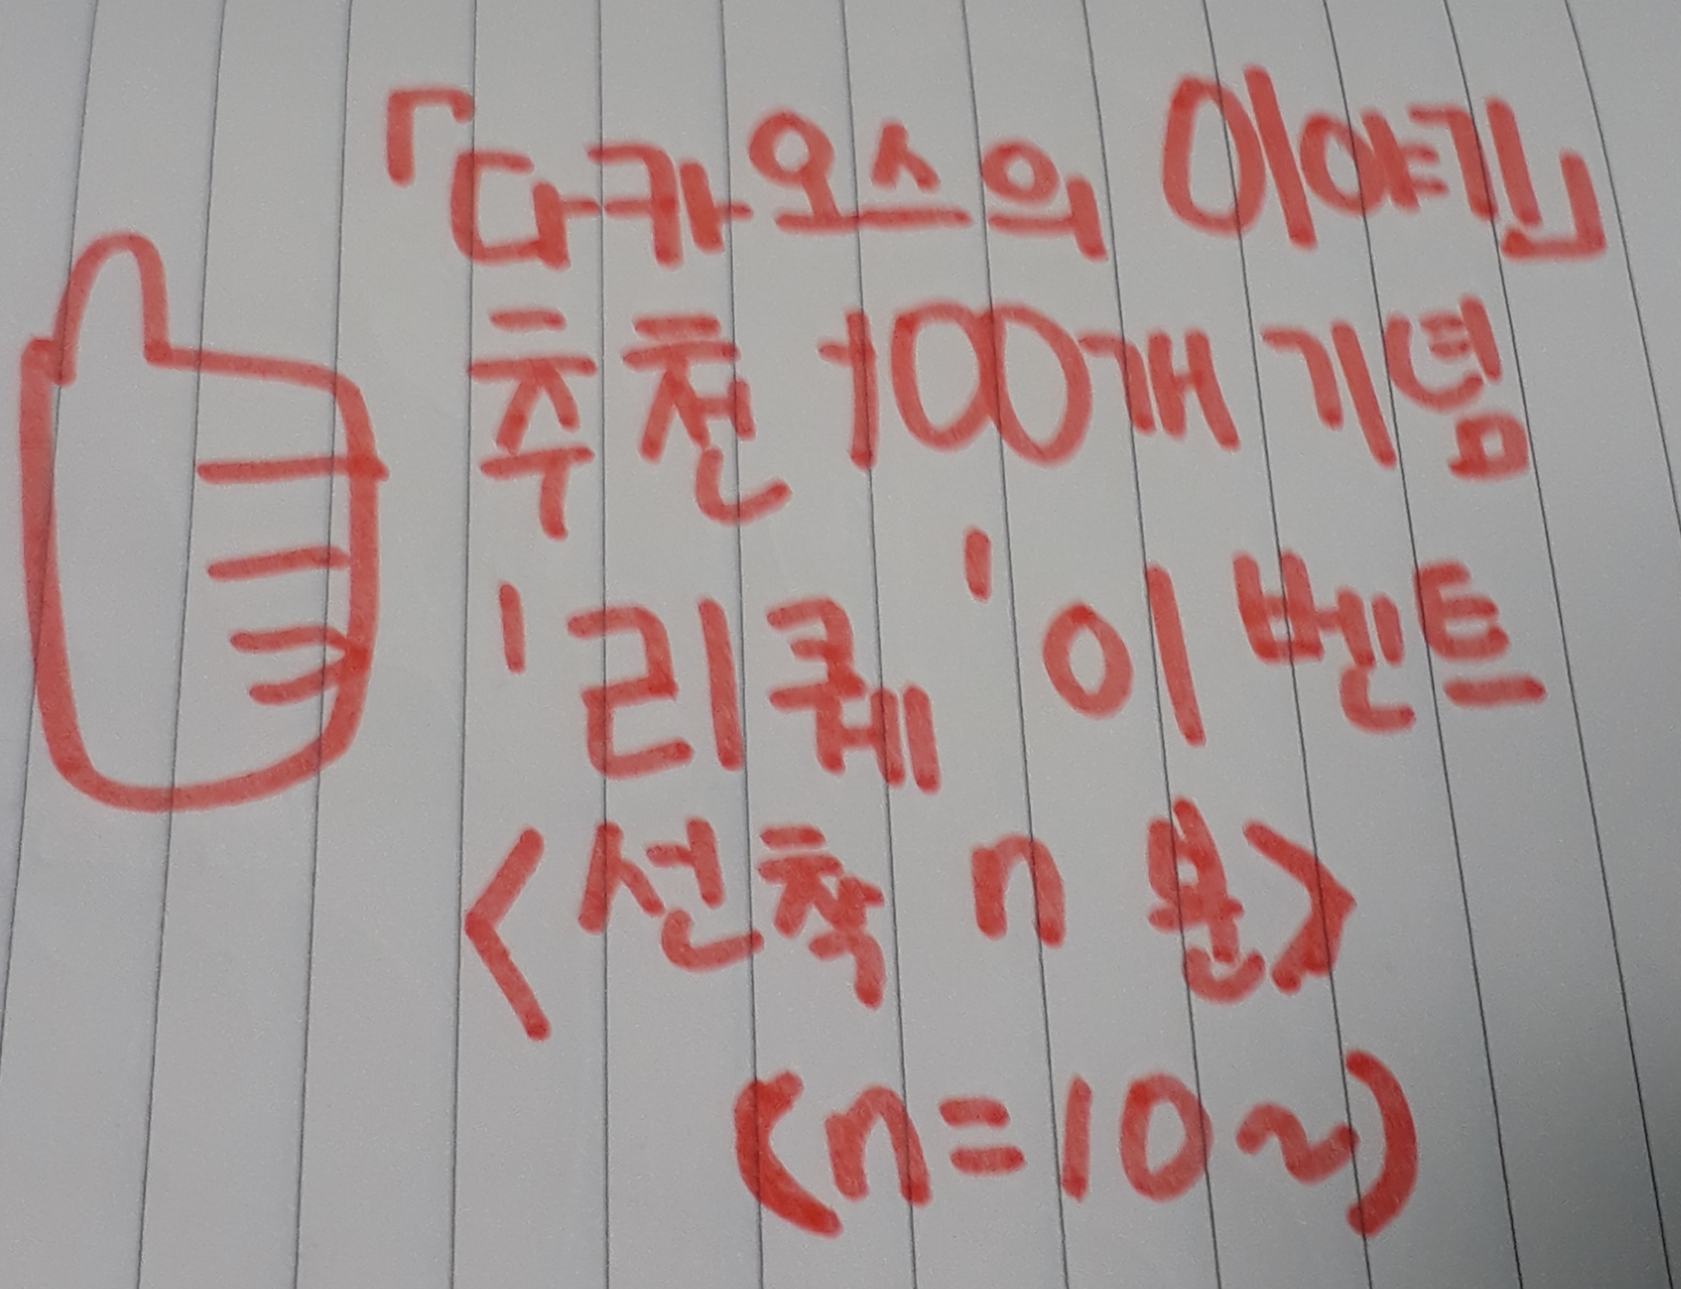 「다카오스의 이야기」
추천 100개 기념
'리퀘' 이벤트
<선착 n 분>
(n=10~)